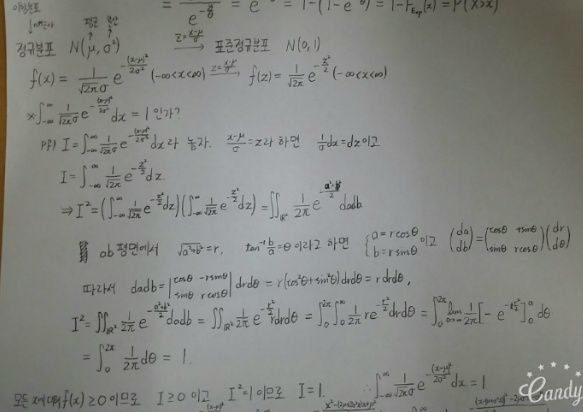 = e^{-} = 1-(1-e) = 1-F_{Exp}(x) = P(X>x)
이항분포
평균 분산
정규분포 N(μ, σ²) z=\frac{x-μ}{σ} → 표준정규분포 N(0,1)
f(x) = \frac{1}{\sqrt{2π}σ} e^{-\frac{(x-μ)²}{2σ²}} (-∞<x<∞) → f(z) = \frac{1}{\sqrt{2π}} e^{-\frac{z²}{2}} (-∞<x<∞)
※ ∫_{-∞}^{∞} \frac{1}{\sqrt{2π}σ} e^{-\frac{(x-μ)²}{2σ²}} dx = 1 인가?
pf) I = ∫_{-∞}^{∞} \frac{1}{\sqrt{2π}σ} e^{-\frac{(x-μ)²}{2σ²}} dx 라 놓자. \frac{x-μ}{σ} = z라 하면 \frac{1}{σ}dx = dz이고
I = ∫_{-∞}^{∞} \frac{1}{\sqrt{2π}} e^{-\frac{z²}{2}} dz.
⇒ I² = (∫_{-∞}^{∞} \frac{1}{\sqrt{2π}} e^{-\frac{z²}{2}} dz)(∫_{-∞}^{∞} \frac{1}{\sqrt{2π}} e^{-\frac{z²}{2}} dz) = ∬_{ℝ²} \frac{1}{2π} e^{\frac{-a²-b²}{2}} dadb
ab평면에서 \sqrt{a²+b²} = r, tan⁻¹\frac{b}{a} = θ 이라고 하면 {a = rcosθ, b = rsinθ 이고 (da db) = (cosθ -rsinθ sinθ rcosθ)(dr dθ)
따라서 dadb = |cosθ -rsinθ sinθ rcosθ| drdθ = r(cos²θ+sin²θ)drdθ = rdrdθ,
I² = ∬_{ℝ²} \frac{1}{2π} e^{-\frac{a²+b²}{2}} dadb = ∬_{ℝ²} \frac{1}{2π} e^{-\frac{r²}{2}} rdrdθ = ∫_0^{2π} ∫_0^{∞} \frac{1}{2π} re^{-\frac{r²}{2}} drdθ = ∫_0^{2π} lim_{a→∞} \frac{1}{2π} [-e^{-\frac{r²}{2}}]_0^a dθ
= ∫_0^{2π} \frac{1}{2π} dθ = 1.
모든 x에 대해 f(x) ≥ 0 이므로 I ≥ 0 이고 I² = 1 이므로 I = 1. ∴ ∫_{-∞}^{∞} \frac{1}{\sqrt{2π}σ} e^{-\frac{(x-μ)²}{2σ²}} dx = 1
Candy